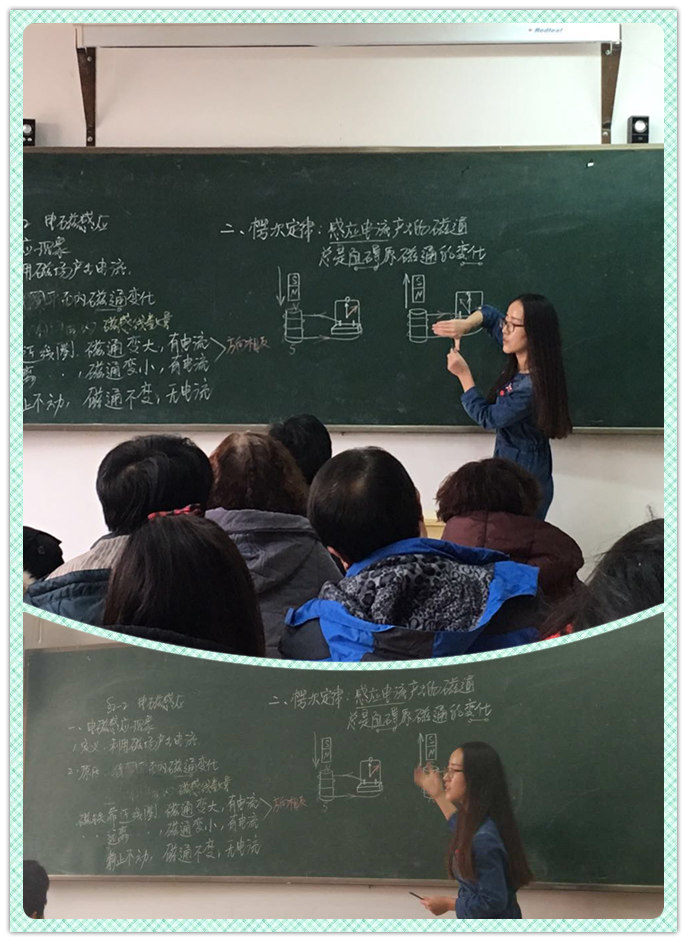 电磁感应
应现象
用磁场产生电流.
内磁通变化
磁感线数量
近线圈. 磁通变大, 有电流
离 〃, 磁通变小, 有电流
止不动, 磁通不变, 无电流
方向相反
二、楞次定律: 感应电流产生的磁通
总是阻碍原磁通的变化
S
N
S
S
N
电磁感应
一、电磁感应现象
1.定义: 利用磁场产生电流
2. 内磁通变化
磁感线数量
磁铁靠近线圈 磁通变大, 有电流
远离 〃, 磁通变小, 有电流
静止不动, 磁通不变, 无电流
方向相反
二、楞次定律: 感应电流产生的磁通
总是阻碍原磁通的变化
S
N
S
S
N